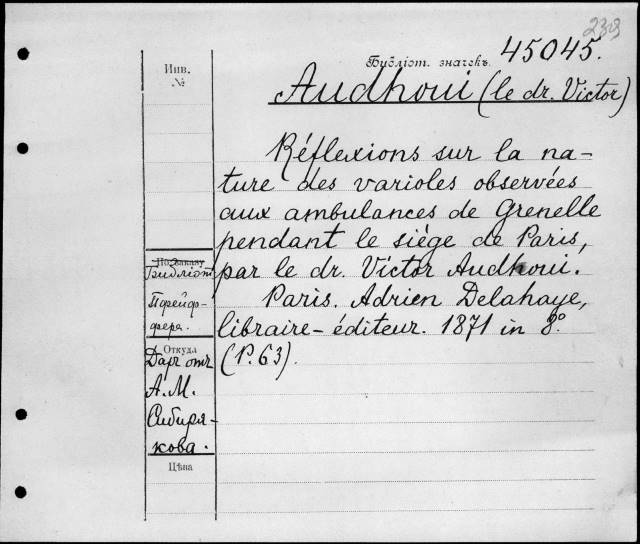 239
Библіот. значекъ 45045.
Инв.
№
Audhoui (le dr. Victor)
Réflexions sur la na-
ture des varioles observées
aux ambulances de Grenelle
pendant le siége de Paris,
par le dr. Victor Audhoui.
Paris. Adrien Delahaye,
libraire-éditeur. 1871 in 8º.
(P. 63).
По заказу
Библіот.
Пфейф-
фера.
Откуда
Даръ отъ
А. М.
Сибиря-
кова.
Цѣна